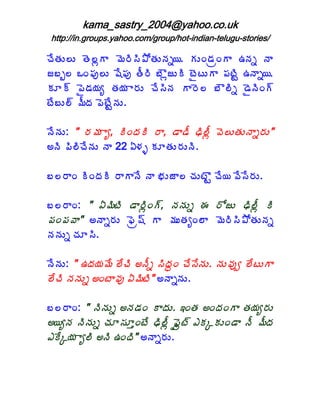 kama_sastry_2004@yahoo.co.uk
http://in.groups.yahoo.com/group/hot-indian-telugu-stories/
చేతులు తెల్లగా మెరిసిపోతున్నయి. గుండ్రంగా ఉన్న నా
జబ్బల ఒంపులు షేపు తీరి బ్లౌజుకి బైటుగా పట్టి ఉన్నాయి.
కూర పైడయ్య తయారు చేసిన గారెల బౌల్ని డైనింగ్
టేబుల్ మీద పెట్టేను.
నేను: " రమ్యా, కిందకి రా, డాడీ ఢిల్లీ వెలుతున్నారు"
అని పిలిచేను నా 22 ఏళ్ళ కూతురుని.
బలరాం కిందకి రాగానే నా భుజాల చుట్టౌ చేయి వేసేరు.
బలరాం: " ఏమిటి డార్లింగ్, నన్ను ఈ రోజు ఢిల్లీ కి
పంపవా" అన్నారు ఫ్రెష్ గా ముత్యంలా మెరిసిపోతున్న
నన్ను చూసి.
నేను: " ఉదయమే లేచి అన్నీ సిద్ధం చేసేను. నువ్వు లేటుగా
లేచి నన్ను అంటావు ఏమిటి" అన్నాను.
బలరాం: " నిన్ను అనడం కాదు. ఇంత అందంగా తయ్యరు
అయ్యిన నిన్ను చూస్తూంటే ఢిల్లీ ఫ్లైట్ ఎక్కకుండా నీ మీద
ఎక్కేయ్యాలి అని ఉంది" అన్నారు.